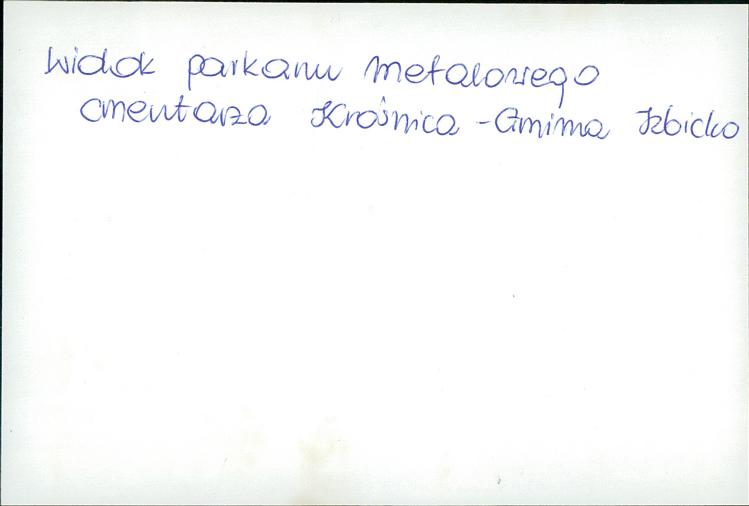 Widok parkanu metalowego
cmentarza Krośnica - Gmina Izbicko